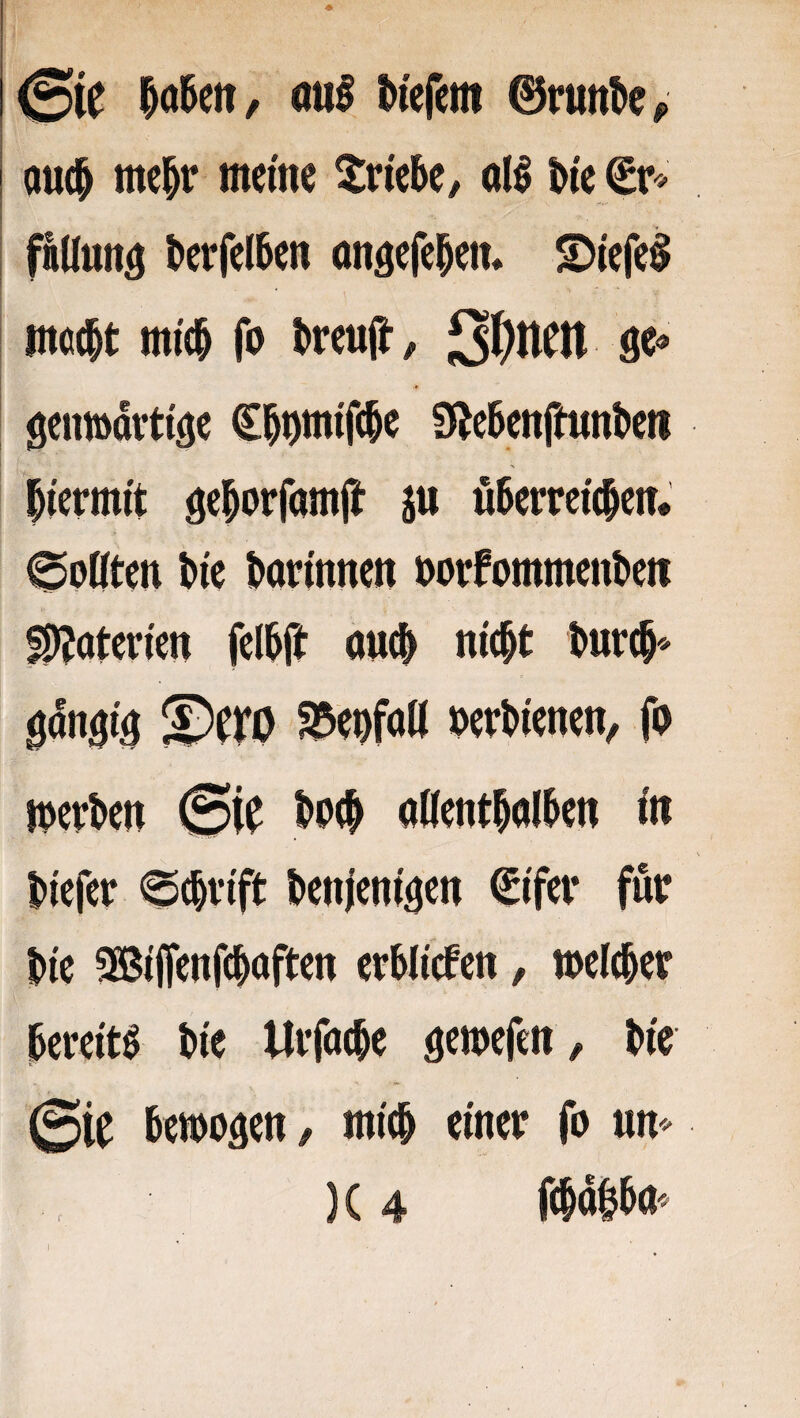 Sie haben, aus diesem Grunde,
auch mehr meine Triebe, als die Er-
füllung derselben angesehen. Dieses
macht mich so dreust, Ihnen ge-
genwärtige Chymische Nebenstunden
hiermit gehorsamst zu überreichen.
Sollten die darinnen vorkommenden
Materien selbst auch nicht durch-
gängig Dero Beyfall verdienen, so
werden Sie doch allenthalben in
dieser Schrift denjenigen Eifer für
die Wissenschaften erblicken, welcher
bereits die Ursache gewesen, die
Sie bewogen, mich einer so un-
)( 4 schätzba-